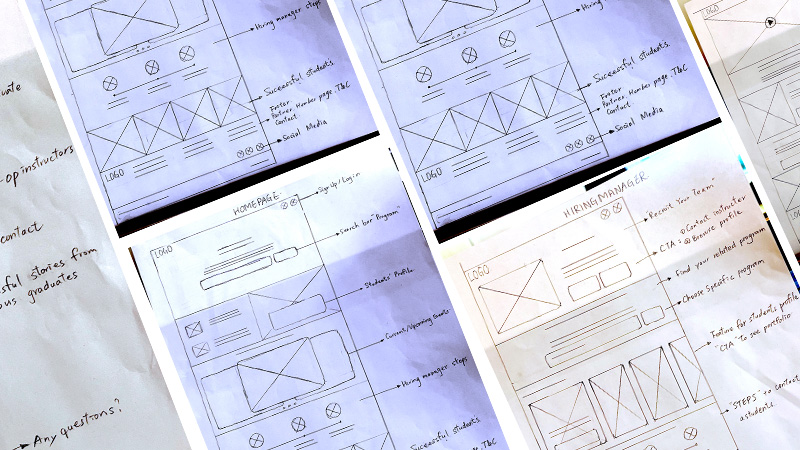 uate
op instructors
contact
ful stories from
ous graduates
Any questions?
Hiring manager steps
Successful students.
Footer
Contact
Social Media
LOGO
Hiring
Successful students.
Footer
Contact
Social Media
LOGO
HOMEPAGE.
SignUp/Login
LOGO
Search bar "Program"
Students' Profile
Current/Upcoming Events
Hiring manager steps
Successful students.
HIRING MANAGER.
LOGO
"Recruit Your Team"
CTA: ① Contact instructor
② Browse profile
Find your related program
Choose specific program
Feature for students profile
"CTA" to see portfolio
"STEPS" to contact
a students.
LOGO
LOGO